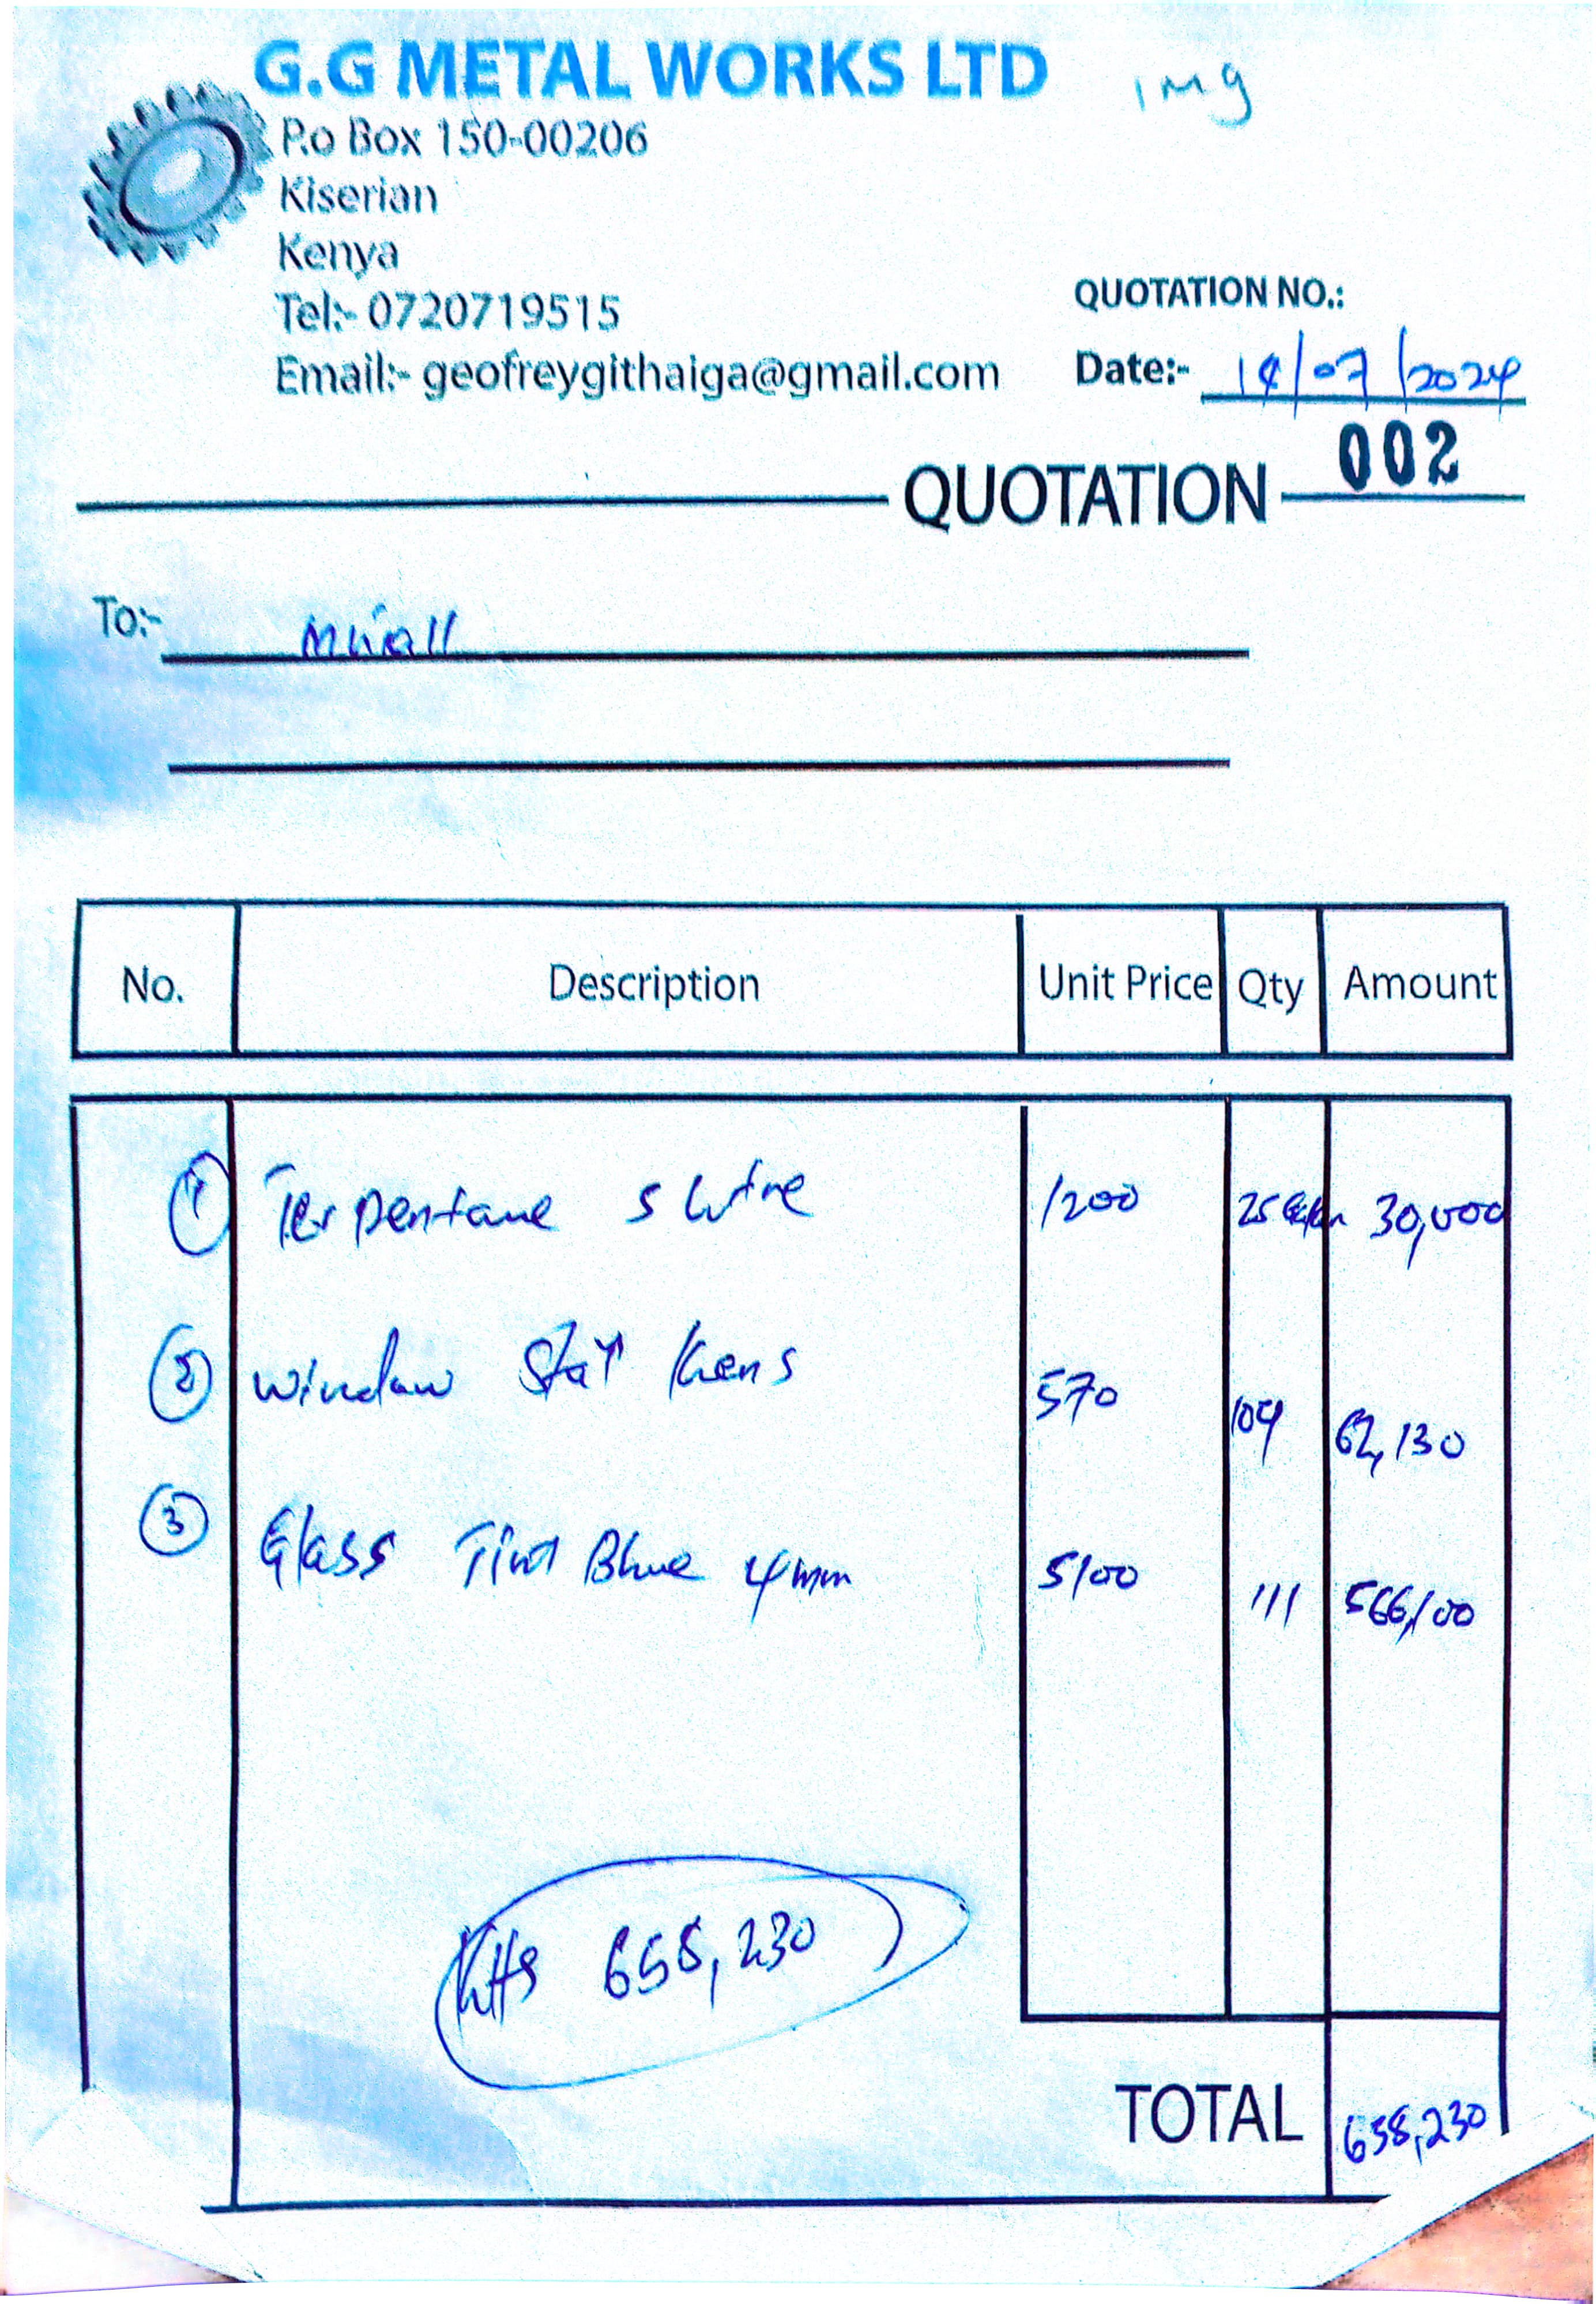 G.G METAL WORKS LTD
img
P.o Box 150-00206
Kiserian
Kenya
Tel:- 0720719515
Email:- geofreygithaiga@gmail.com
QUOTATION NO.:
Date:- /07/2024
002
QUOTATION
To:-
No. Description Unit Price Qty Amount
1 Terpentane 5 Litre 1200 25 30,000
2 Window Stay 570 109 62,130
3 Glass Tint Blue 4mm 5100 111 566,100
658,230
TOTAL 658,230